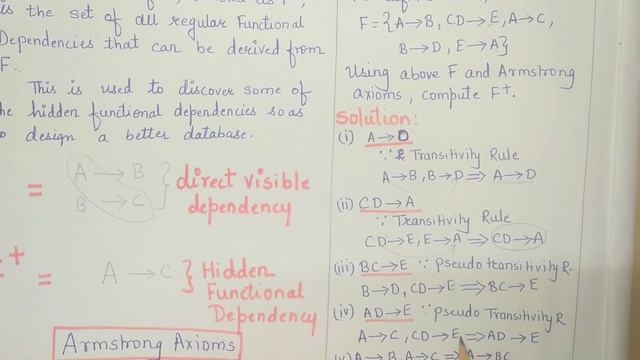 is the set of all regular Functional
Dependencies that can be derived from
F.
This is used to discover some of
he hidden functional dependencies so as
o design a better database.
= A → B
B → C } direct visible
dependency
+ = A → C } Hidden
Functional
Dependency
Armstrong Axioms
F = { A → B, CD → E, A → C,
B → D, E → A }
Using above F and Armstrong
axioms, compute F+.
Solution:
(i) A → D
∵ Transitivity Rule
A → B, B → D ⇒ A → D
(ii) CD → A
∵ Transitivity Rule
CD → E, E → A ⇒ CD → A
(iii) BC → E ∵ Pseudo transitivity R.
B → D, CD → E ⇒ BC → E
(iv) AD → E ∵ Pseudo Transitivity R
A → C, CD → E ⇒ AD → E
A → B, A → C ⇒ A → BC